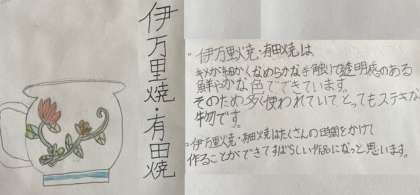 伊万里焼・有田焼
・伊万里焼・有田焼は
キメが細かくなめらかな手触りで透明感のある
鮮やかな色でできています。
そのため多く使われていてとってもステキな
物です。
・伊万里焼・有田焼はたくさんの時間をかけて
作ることができてすばらしい作品になっと思います。